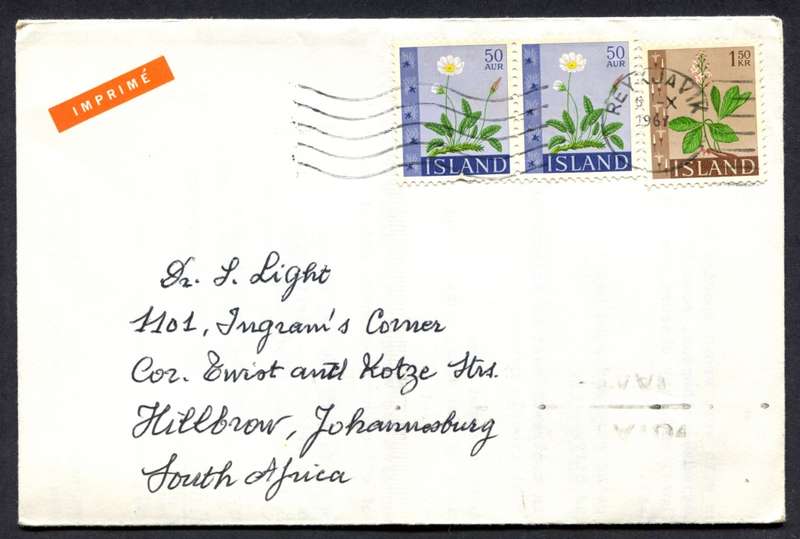 IMPRIMÉ
50 AUR
ÍSLAND
50 AUR
ÍSLAND
1 50 KR
ÍSLAND
REYKJAVIK
X
1967
Dr. S. Light
1101, Ingram's Corner
Cor. Twist and Kotze Strs.
Hillbrow, Johannesburg
South Africa